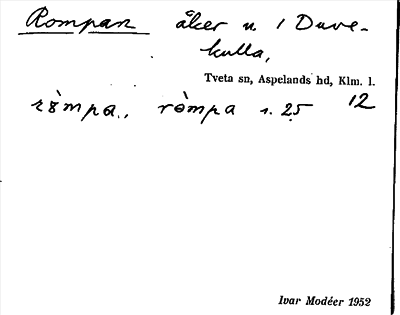 Rompan åker u. 1 Duve-
kulla,
Tveta sn, Aspelands hd, Klm. l.
ròmpa., ròmpa s. 25 12
Ivar Modéer 1952